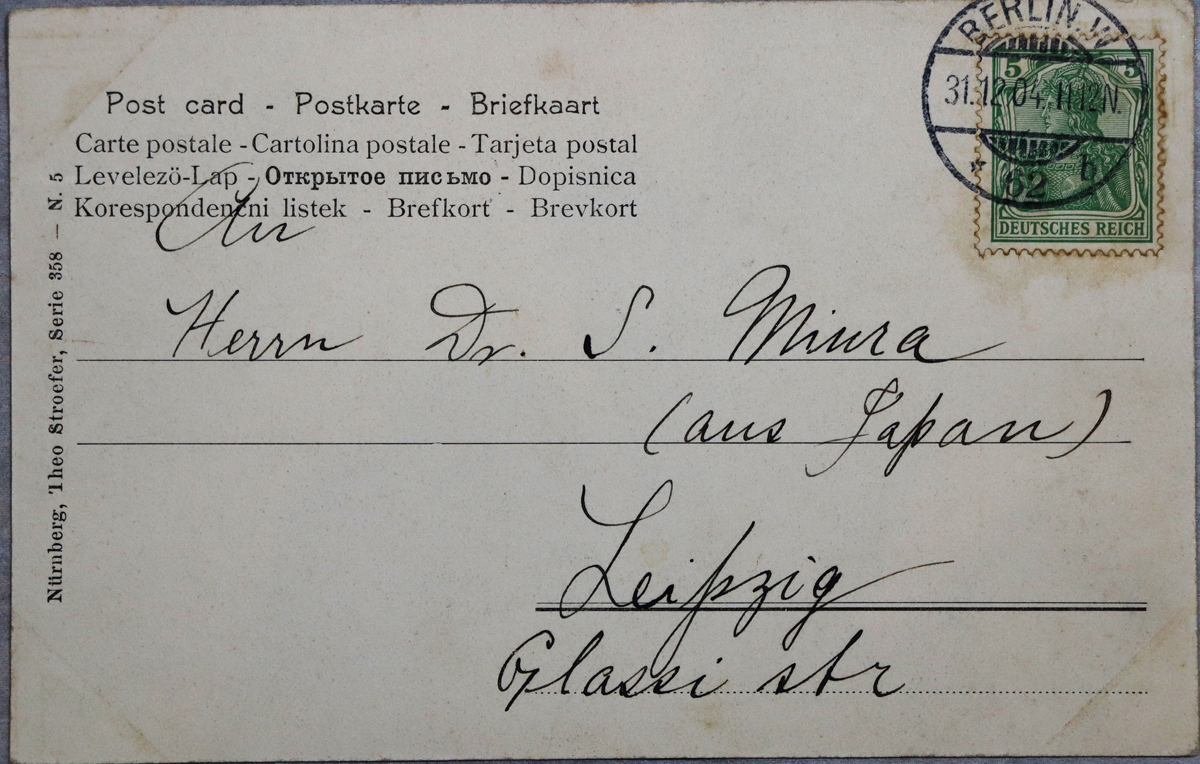 BERLIN. W
31.12.04.11-12N.
* 62 b.
5 5
DEUTSCHES REICH
Post card - Postkarte - Briefkaart
Carte postale - Cartolina postale - Tarjeta postal
Levelezö-Lap - Открытое письмо - Dopisnica
Korespondenčni listek - Brefkort - Brevkort
An
Herrn Dr. S. Miura
(aus Japan)
Leipzig
Glassi str
Nürnberg, Theo Stroefer, Serie 358 — N. 5